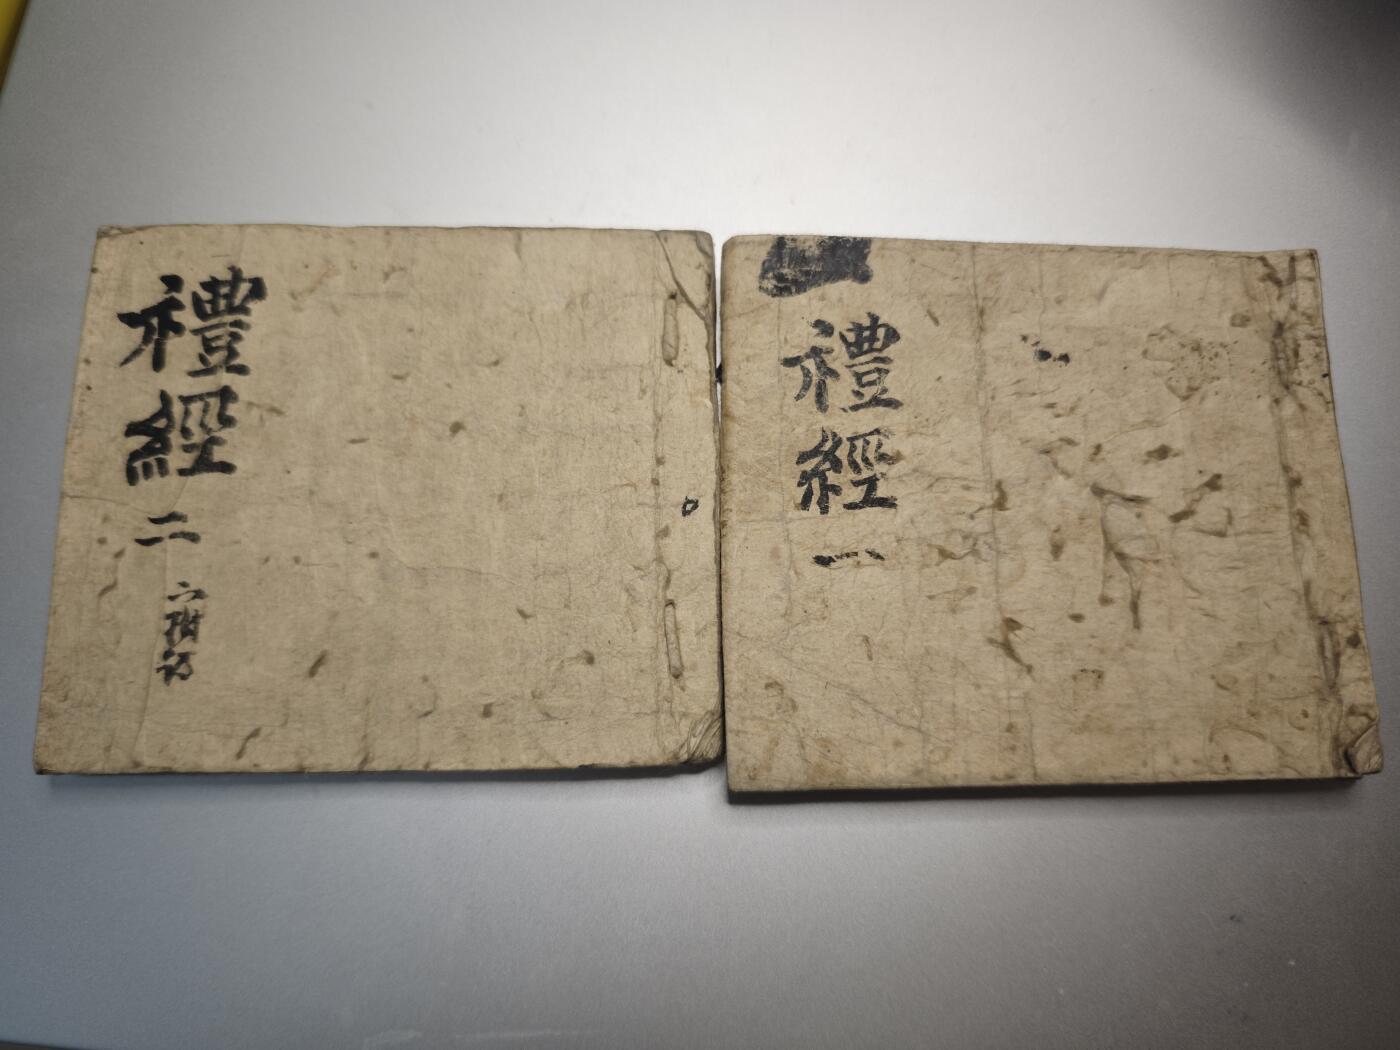 禮經
一
禮經
二